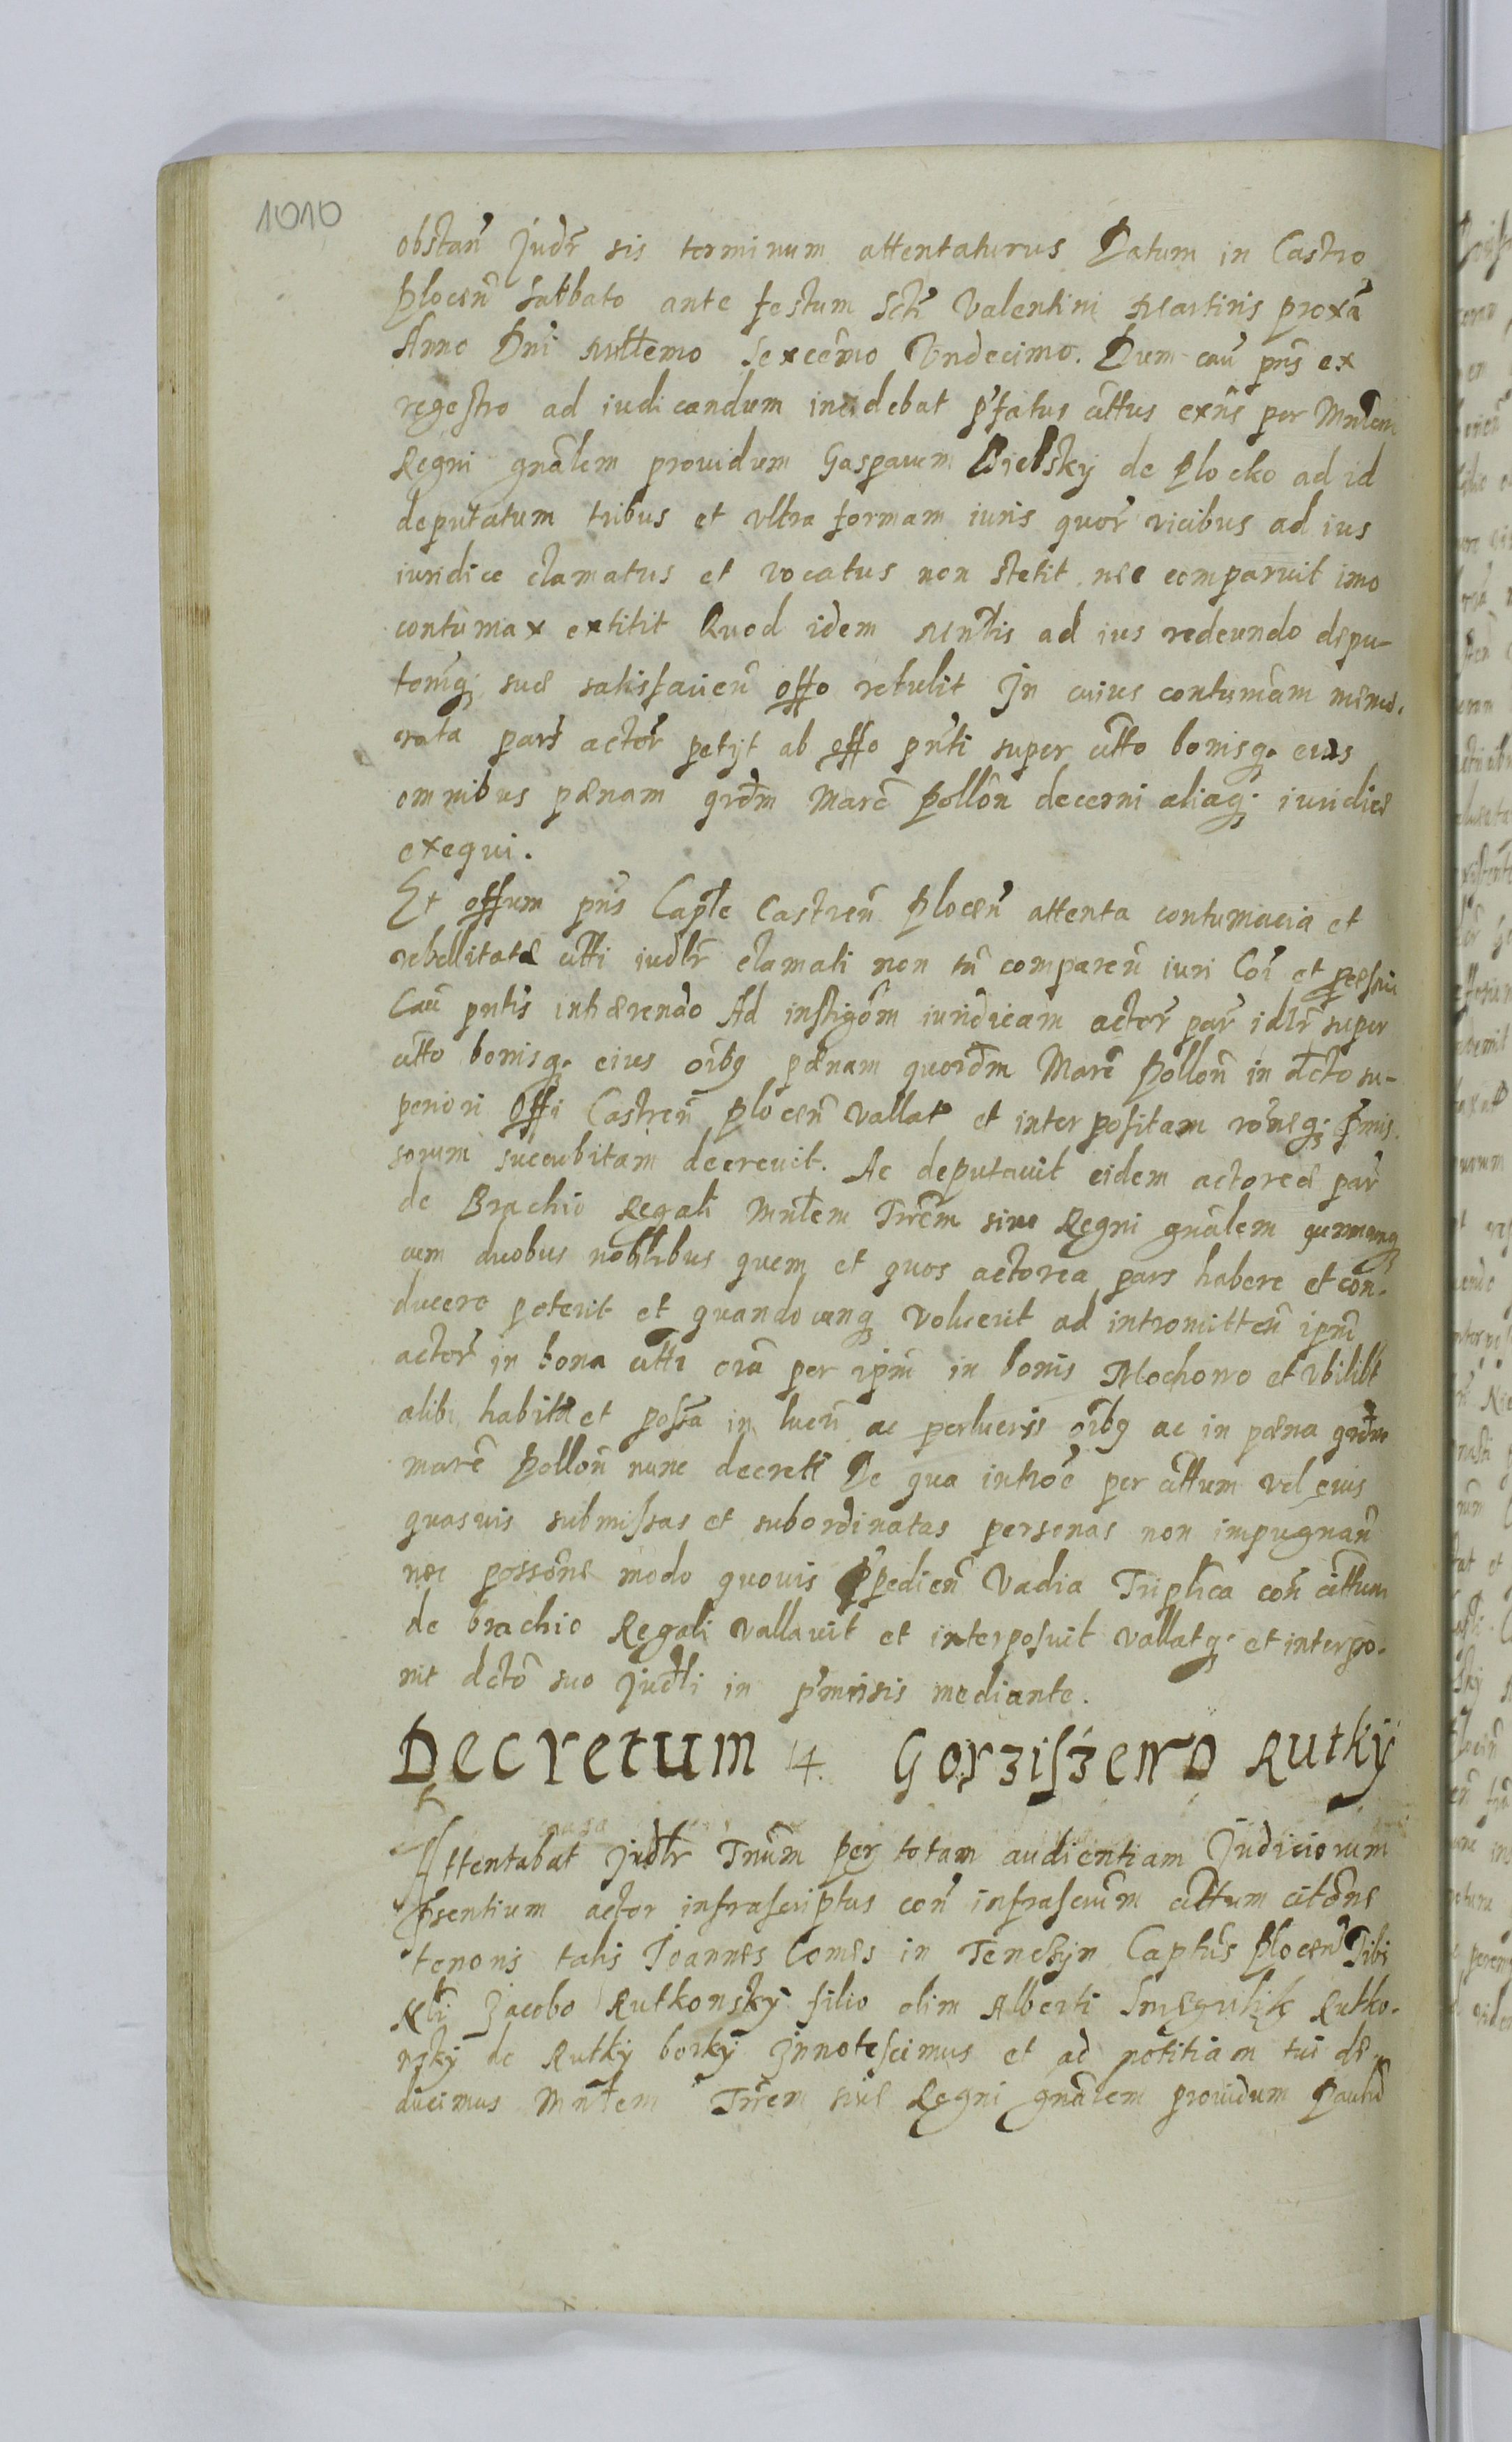 1010
obstan̄ Judr̄ sis terminum attentaturus Datum in Castro
Plocen̄ Sabbato ante festum Scti Valentini Martiris proxā
Anno Dni Millemo Sexcēmo Vndecimo. Dum cau pn̄s ex
regestro ad iudicandum incidebat p̄fatus cīttus exn̄s per Mn̄lem
Regni gn̄alem prouidum Gasparum Bielsky de Plocko ad id
deputatum tribus et vltra formam iuris quor̄ vicibus ad ius
iuridice clamatus et vocatus non stetit nec comparuit imo
contumax extitit Quod idem Mn̄lis ad ius redeundo depu-
tonīq; suæ satisfacien̄ offo retulit In cuius contumām memo-
rata pars actor̄ petijt ab offo pn̄ti super cītto bonisq; eius
omnibus pænam qrdm̄ Marc̄ Pollōn decerni aliaq; iuridice
exequi.
Et offum pn̄s Capłe Castren̄ Plocen̄ attenta contumacia et
rebellitate cītti iudłr clamati non tn̄ comparen̄ iuri Coi et
Cau pn̄tis inhærendo Ad instigōm iuridicam actor̄ par̄ idłr super
cītto bonisq; eius oībq pænam quordm̄ Marc̄ Pollon̄ in dcto su-
periori Offi Castren̄ plocen̄ vallat et interpositam rōneq; p̄mis-
sorum succubitam decreuit. Ac deputauit eidem actoreæ par̄
de Brachio Regali Mn̄lem Trr̄em siue Regni gn̄alem quemcunq
cum duobus nobilibus quem et quos actorea pars habere et con-
ducere poterit et quandocunq voluerit ad intromitten̄ ipm̄
actor̄ in bona cītti oīa per ipm̄ in bonis Mochowo et vbilibt
alibi habita et possa in lucris ac perlucris oībq ac in pæna qrdm̄
marc̄ Pollon̄ nunc decreti De qua introē per cīttum vel eius
quasuis submissas et subordinatas personas non impugnan̄
nec possōne modo quouis p̄pedien̄ Vadia Triplica con̄ cīttum
de brachio Regali vallauit et interposuit vallatq; et interpo-
nit dctō suo Judłi in p̄missis mediante.
Decretum 4. Gorziszewo Rutky
Attentabat Judłr Tnūm per totam audientiam Judiciorum
p̄sentium actor infrascriptus con̄ infrascrūm cīttum citōne
tenoris talis Joannes Comes in Tenczyn Capłus Plocen̄ Tibi
Nłi Jacobo Rutkowsky filio olim Alberti Rutko-
wsky de Rutky borky Innotescimus et ad notitiam tui de-
ducimus Mn̄lem Trr̄em siue Regni gn̄alem prouidum Paulū